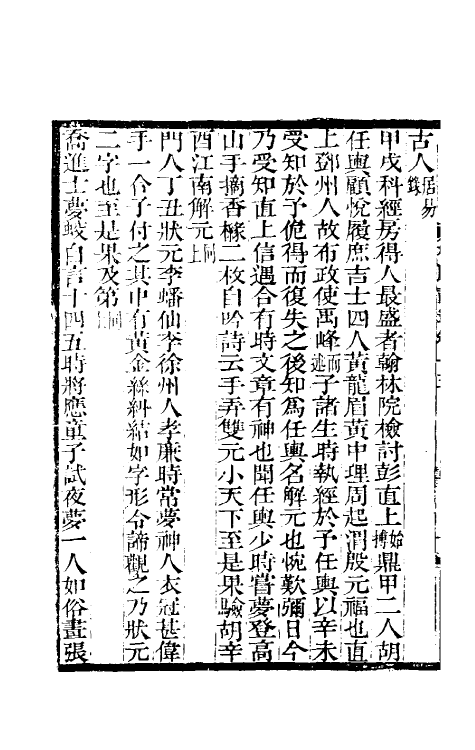 古人居易錄
甲戌科經房得人最盛者翰林院檢討彭直上始摶鼎甲二人胡
任輿顧悅履庶吉士四人黃龍眉黃中理周起渭殷元福也直
上鄧州人故布政使禹峰而述子諸生時執經於予任輿以辛未
受知於予俛得而復失之後知爲任輿名解元也惋歎彌日今
乃受知直上信遇合有時文章有神也聞任輿少時嘗夢登高
山手摘香櫞二枚自吟詩云手弄雙元小天下至是果驗胡辛
酉江南解元同上
門人丁丑狀元李蟠仙李徐州人孝廉時常夢神人衣冠甚偉
手一合子付之其中有黃金絲糾結如字形令諦觀之乃狀元
二字也至是果及第同上
喬進士夢蛟自言十四五時將應童子試夜夢一人如俗畫張